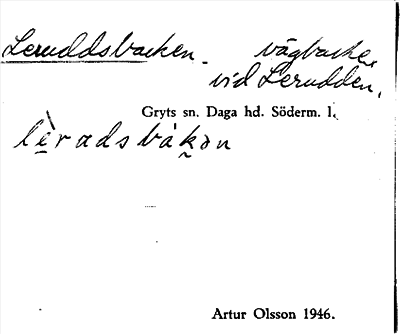 Leruddsbacken. vägbacke
vid Lerudden.
Gryts sn. Daga hd. Söderm. l.
lè̱radsbàk̬ən
Artur Olsson 1946.